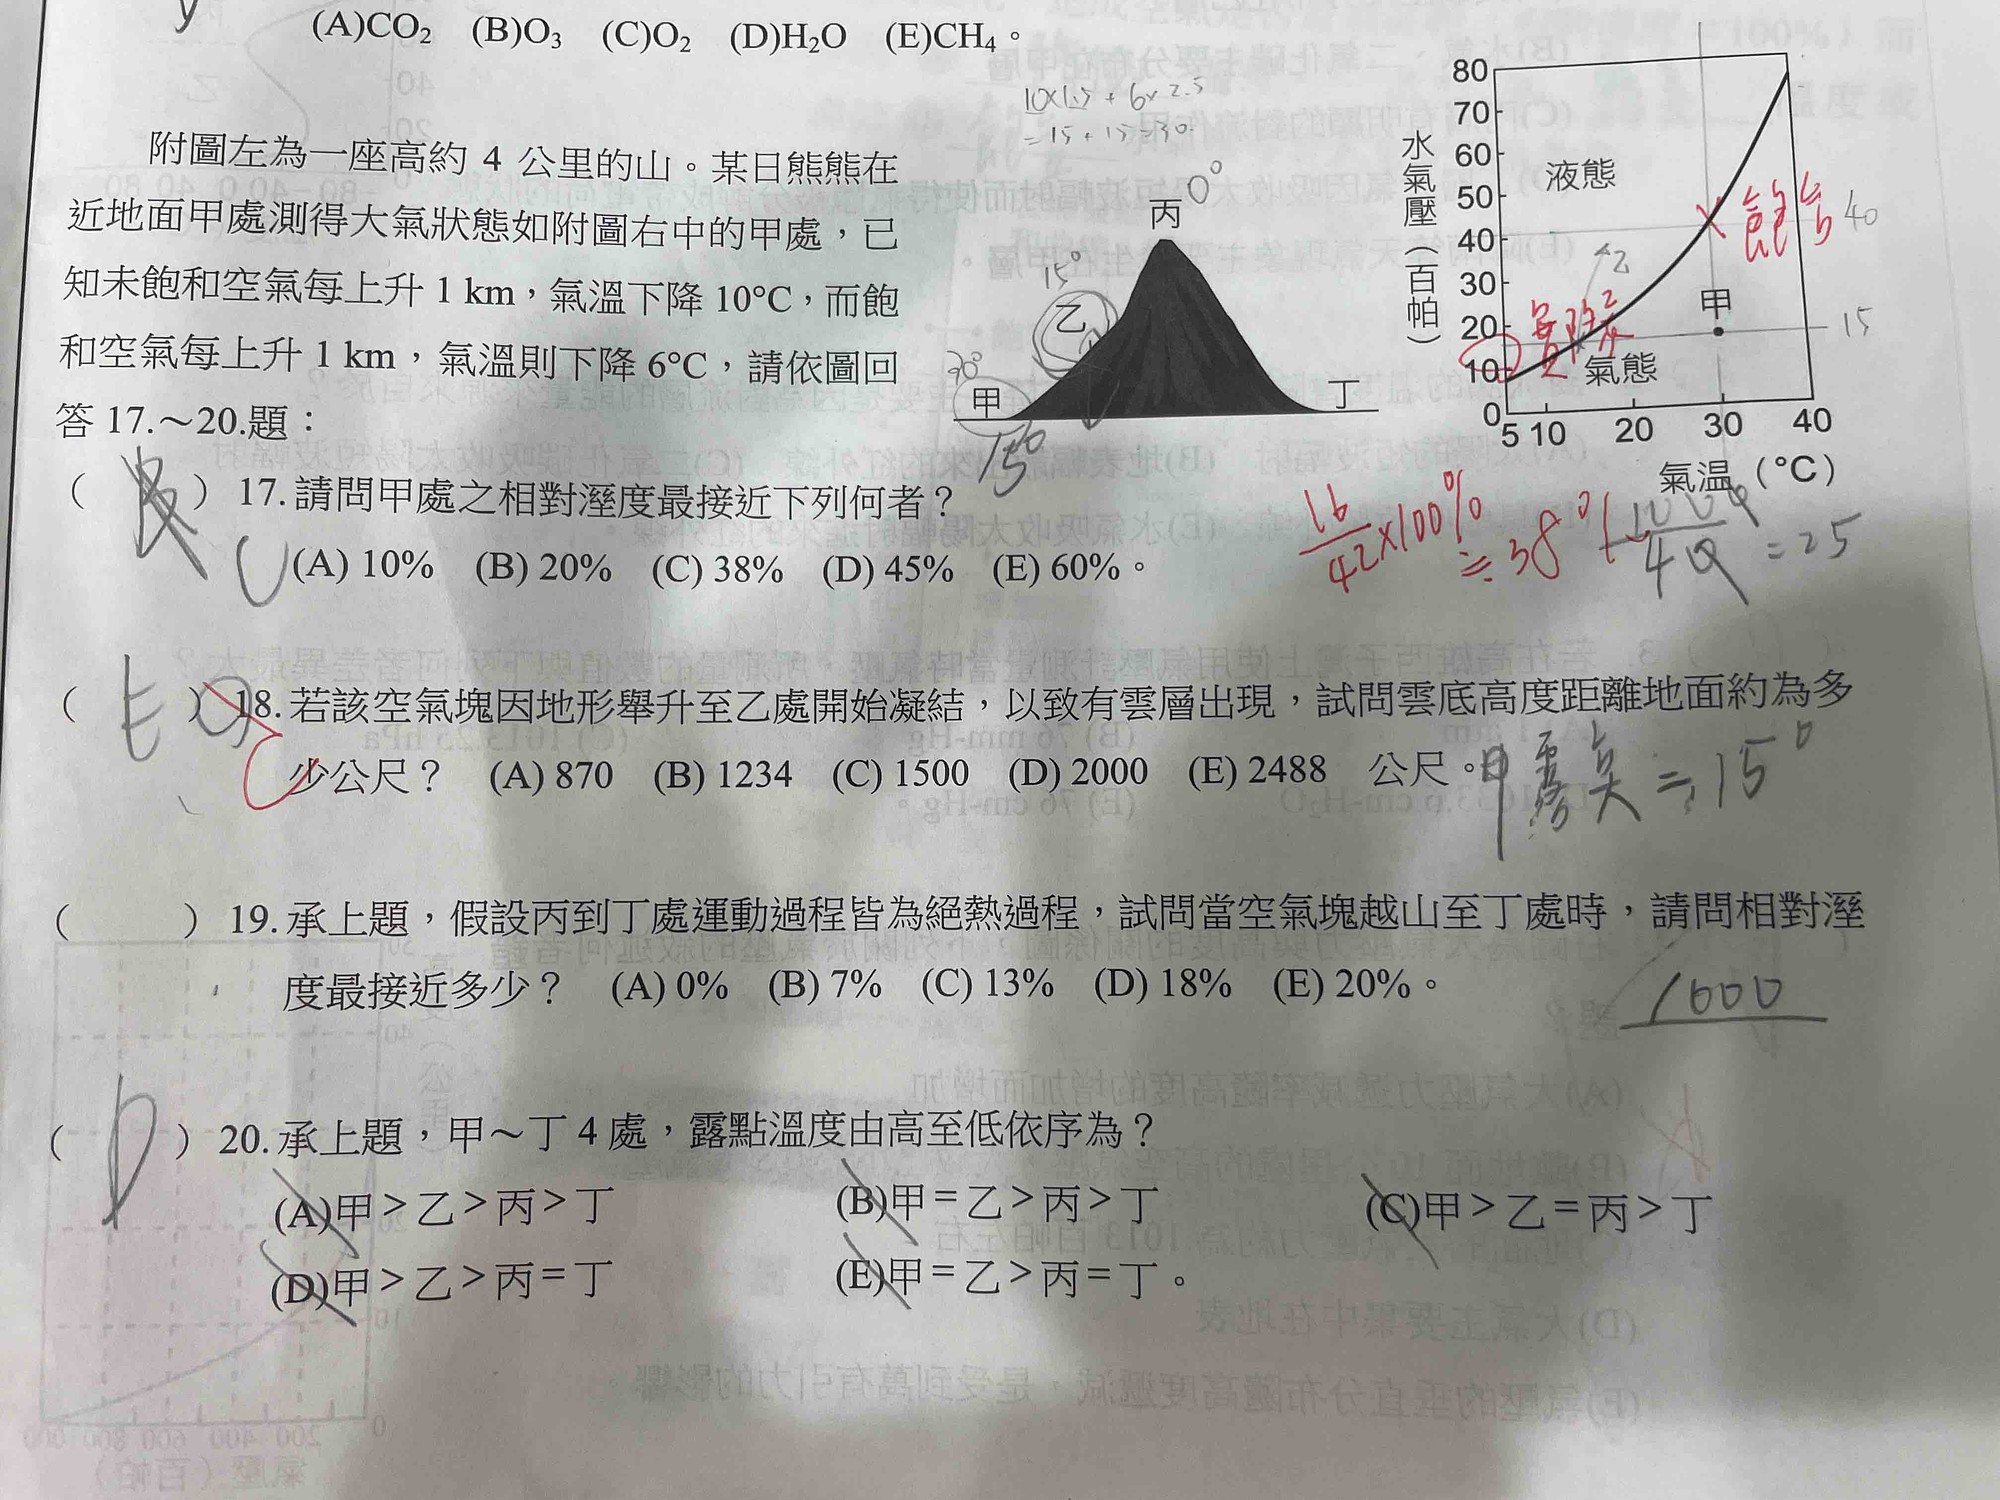 (A)CO₂ (B)O₃ (C)O₂ (D)H₂O (E)CH₄。
附圖左為一座高約 4 公里的山。某日熊熊在
近地面甲處測得大氣狀態如附圖右中的甲處，已
知未飽和空氣每上升 1 km，氣溫下降 10°C，而飽
和空氣每上升 1 km，氣溫則下降 6°C，請依圖回
答 17.～20.題：
10×1.5 + 6×2.5
= 15 + 15 = 30
丙 0°
15°
乙
30°
甲
丁
15°
水氣壓（百帕）
80
70
60
50
40
30
20
10
0
液態
飽和
40
乙
甲
15
露點
氣態
5 10 20 30 40
氣温（°C）
( ) 17. 請問甲處之相對溼度最接近下列何者？
C
(A) 10% (B) 20% (C) 38% (D) 45% (E) 60%。
16/42×100% ≒ 38%
= 25
( E ) 18. 若該空氣塊因地形舉升至乙處開始凝結，以致有雲層出現，試問雲底高度距離地面約為多
C
少公尺？ (A) 870 (B) 1234 (C) 1500 (D) 2000 (E) 2488 公尺。
甲露點 ≒ 15°
( ) 19. 承上題，假設丙到丁處運動過程皆為絕熱過程，試問當空氣塊越山至丁處時，請問相對溼
度最接近多少？ (A) 0% (B) 7% (C) 13% (D) 18% (E) 20%。
1000
( D ) 20. 承上題，甲～丁 4 處，露點溫度由高至低依序為？
(A)甲＞乙＞丙＞丁 (B)甲＝乙＞丙＞丁 (C)甲＞乙＝丙＞丁
(D)甲＞乙＞丙＝丁 (E)甲＝乙＞丙＝丁。